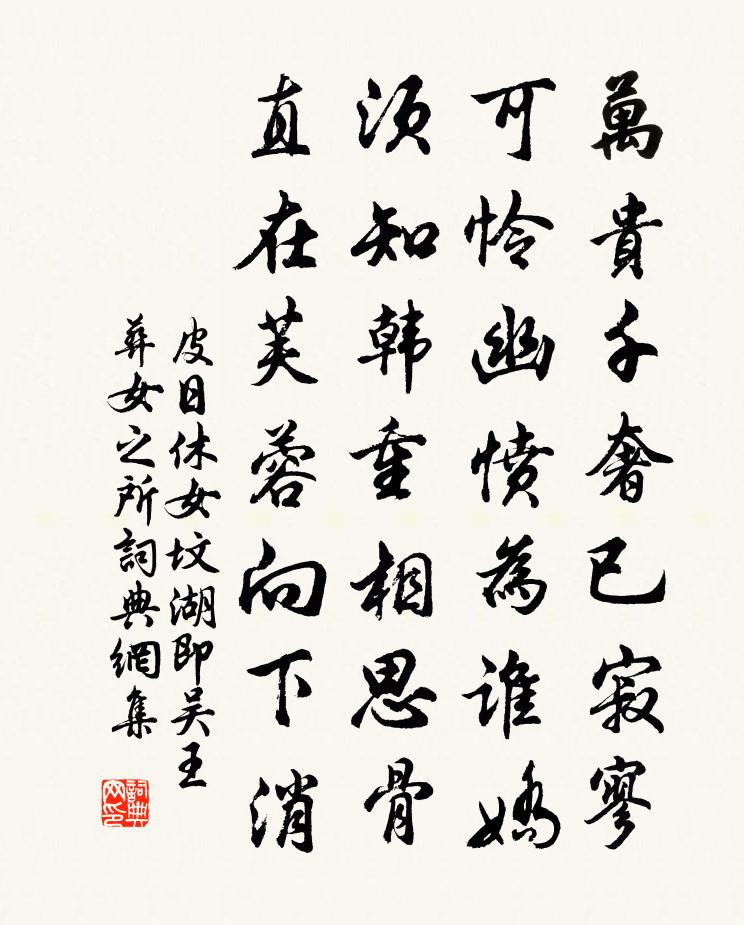 萬貴千奢已寂寥
可憐幽憤為誰嬌
須知韓重相思骨
直在芙蓉向下消
皮日休女坟湖即吴王
葬女之所詞典網集
詞典
网印